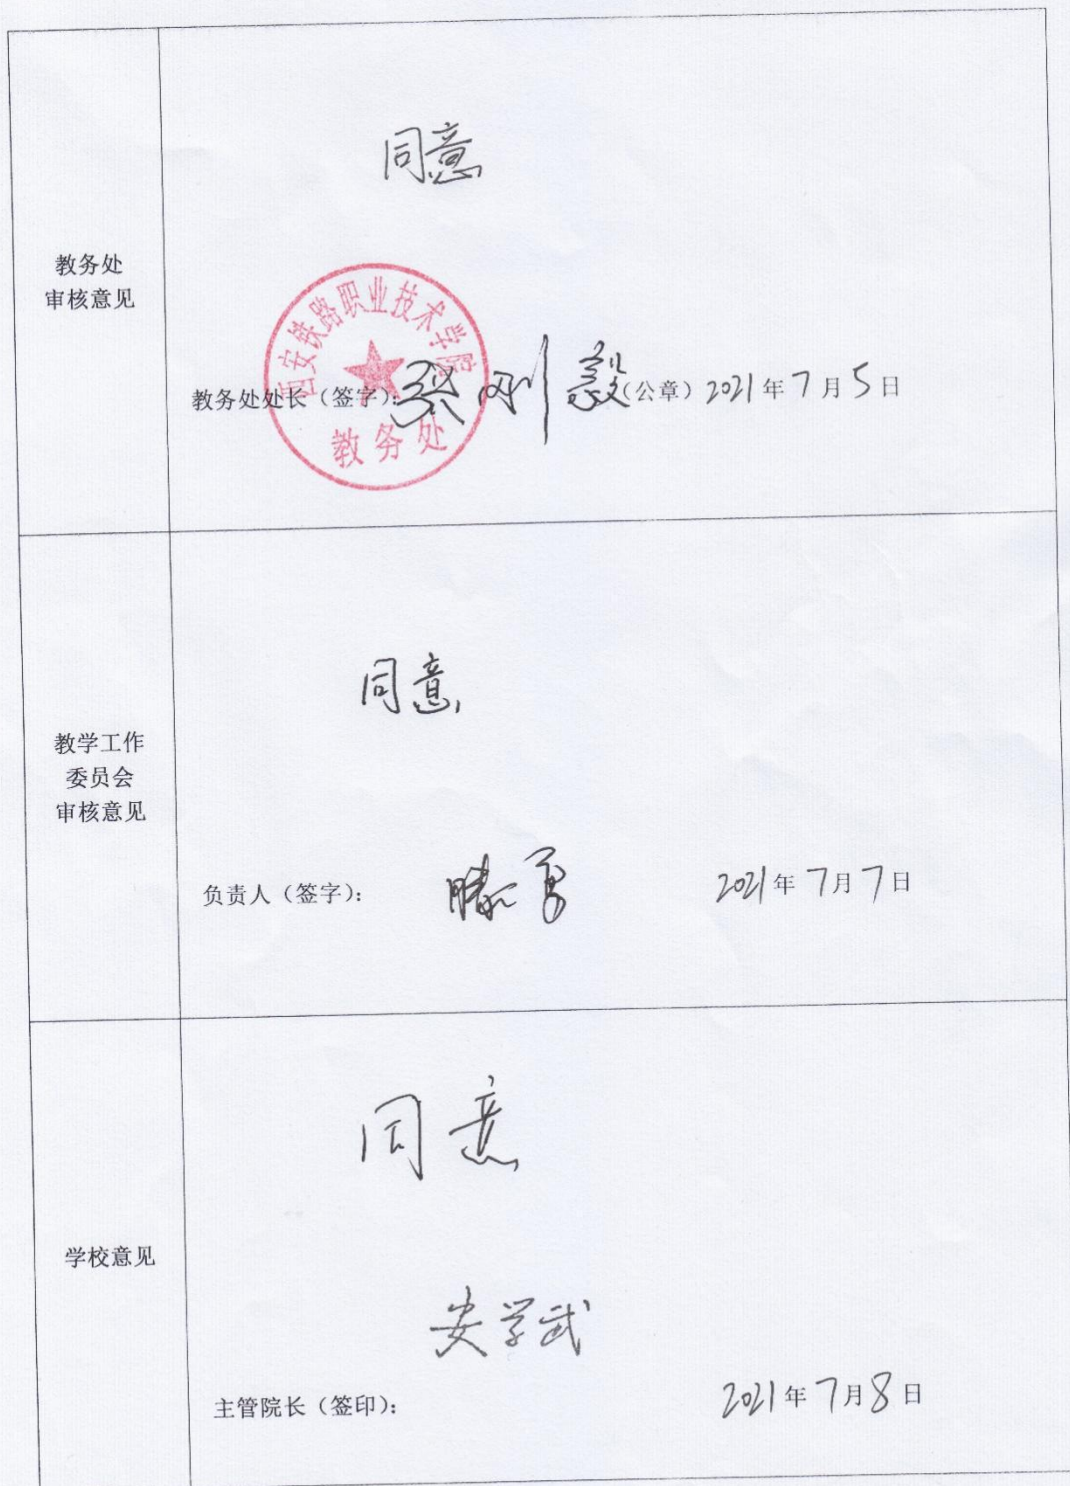 教务处
审核意见
同意
西安铁路职业技术学院
教务处
教务处处长（签字）：张刚毅（公章）2021年7月5日
教学工作
委员会
审核意见
同意
负责人（签字）：滕勇 2021年7月7日
学校意见
同意
安学武
主管院长（签印）： 2021年7月8日